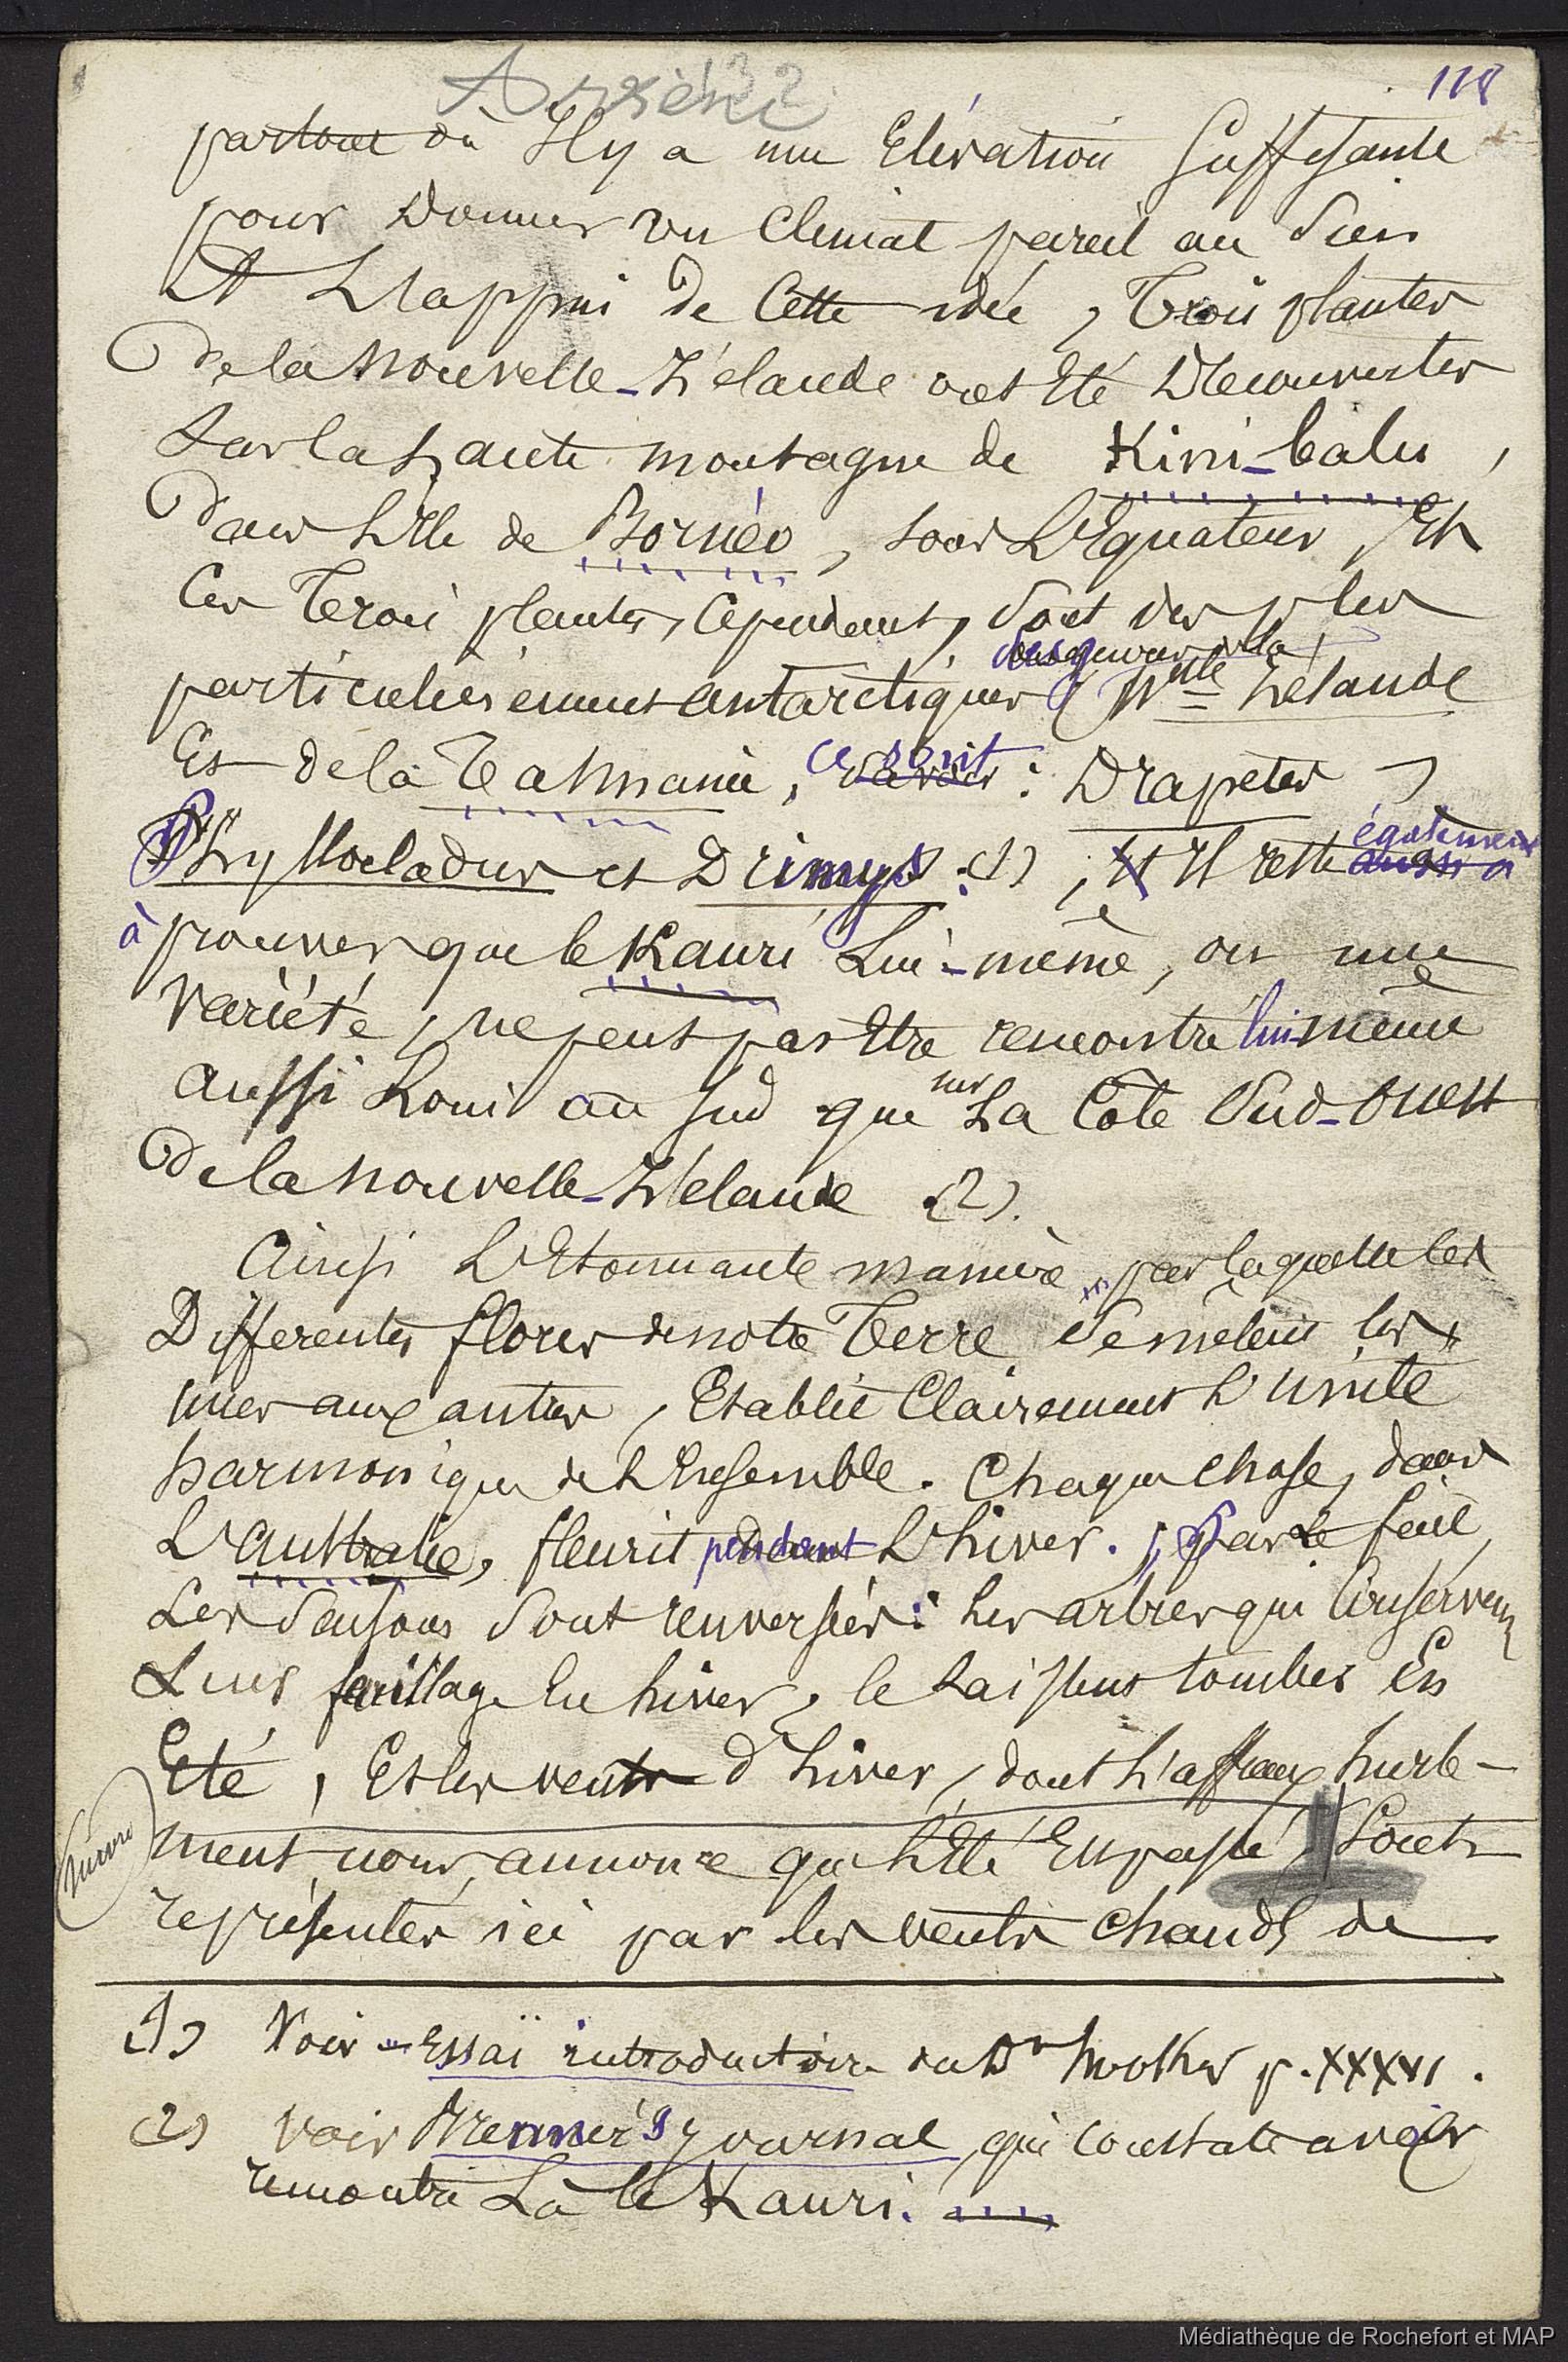 118
partout où Il y a une Elévation Suffisante
pour Donner un Climat pareil au Sien
A L'appui de Cette idée, Trois plantes
De la Nouvelle-Zélande ont Eté Découvertes
Sur la haute montagne de Kini-balu,
Dans L'Ile de Bornéo, sous L'Equateur, Et
Ces Trois plantes, Cependant, Sont des plus
particulièrement antarctiques (Nlle Zélande
Et de la Tasmanie, ce sont : Drapetes,
Phyllocladus et Drimys (1), Il reste également
à prouver que le Kauri Lui-même, ou une
Variété, ne peut pas Etre rencontré lui-même
aussi Loin au Sud que sur La Côte Sud-Ouest
De la Nouvelle-Zélande (2).
Ainsi L'Etonnante manière par laquelle les
Différentes flores de notre Terre Se mêlent les
unes aux autres, Etablit Clairement L'unité
harmonique de L'Ensemble. Chaque chose, dans
L'australie, fleurit pendant L'hiver. Par le fait,
Les Saisons Sont renversées : Les arbres qui Conservent
Leur feuillage En hiver, le Laissent tomber En
Eté, Et les vents d'hiver, dont L'affreux hurle-
ment nous annonce que L'Eté Est passé, Sont
représentés ici par les vents chauds de
(1) Voir Essaï introductoire du Dr Hooker p. XXXVI.
(2) Voir Brenner's journal, qui Constate avoir
rencontré Là le Kauri.
Médiathèque de Rochefort et MAP